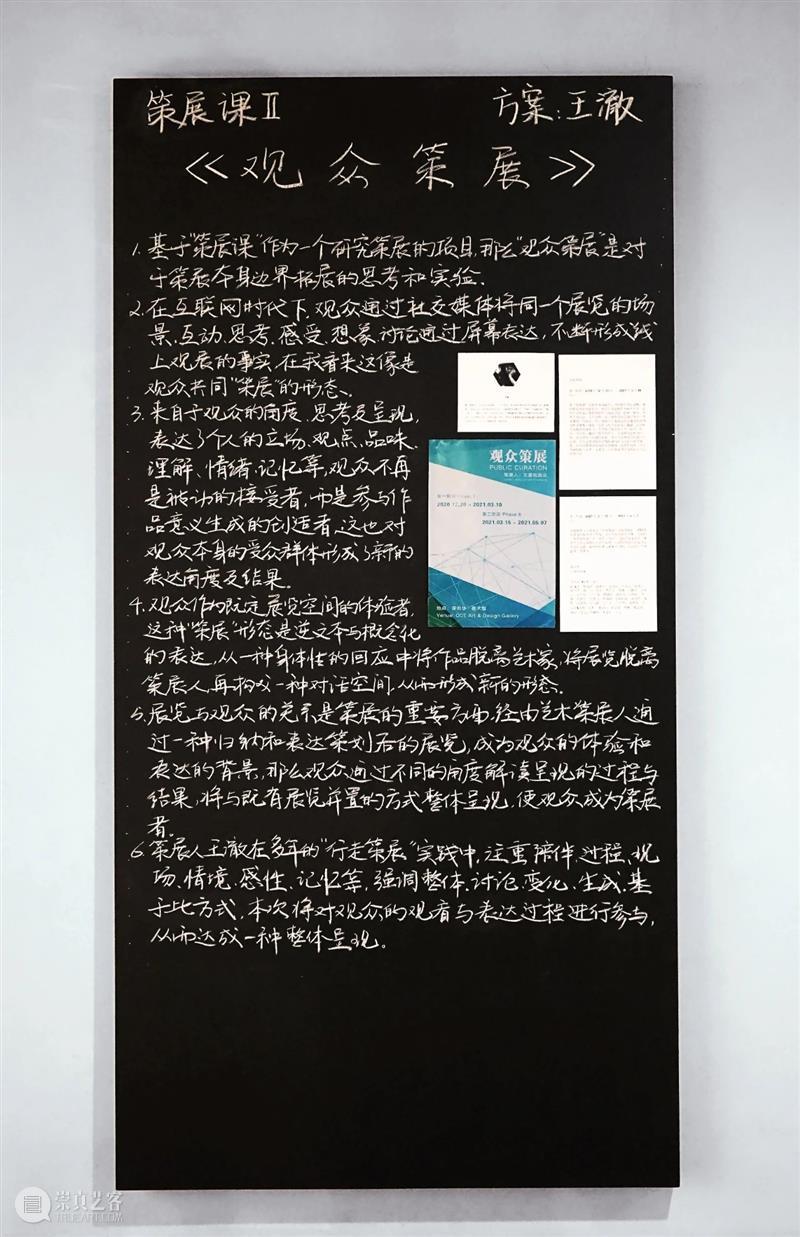 策展课Ⅱ 方案:王澈
《观众策展》
1. 基于"策展课"作为一个研究策展的项目,那么"观众策展"是对
于策展本身边界拓展的思考和实验.
2. 在互联网时代下,观众通过社交媒体将同一个展览的场
景、互动、思考、感受、想象、讨论通过屏幕表达,不断形成线
上观展的事实,在我看来这像是
观众共同"策展"的形态.
3. 来自于观众的角度、思考及呈现,
表达了个人的立场、观点、品味、
理解、情绪、记忆等,观众不再
是被动的接受者,而是参与作
品意义生成的创造者,这也对
观众本身的受众群体形成了新的
表达角度及结果.
4. 观众作为既定展览空间的体验者,
这种"策展"形态是逆文本与概念化
的表达,从一种身体性的回应中将作品脱离艺术家,将展览脱离
策展人,再构成一种对话空间,从而形成新的形态.
5. 展览与观众的关系是策展的重要方面,经由艺术策展人通
过一种归纳和表达策划后的展览,成为观众的体验和
表达的背景,那么观众通过不同的角度解读呈现的过程与
结果,将与既有展览并置的方式整体呈现,使观众成为策展
者.
6. 策展人王澈在多年的"行走策展"实践中,注重陪伴、过程、现
场、情境、感性、记忆等,强调整体、讨论、变化、生成.基
于此方式,本次将对观众的观看与表达过程进行参与,
从而达成一种整体呈现。
观众策展
PUBLIC CURATION
第一阶段 Phase I
2020.12.20 - 2021.03.10
第二阶段 Phase II
2021.03.15 - 2021.05.07
Venue: OCT Art & Design Gallery
崇真艺客
TRUEART.COM